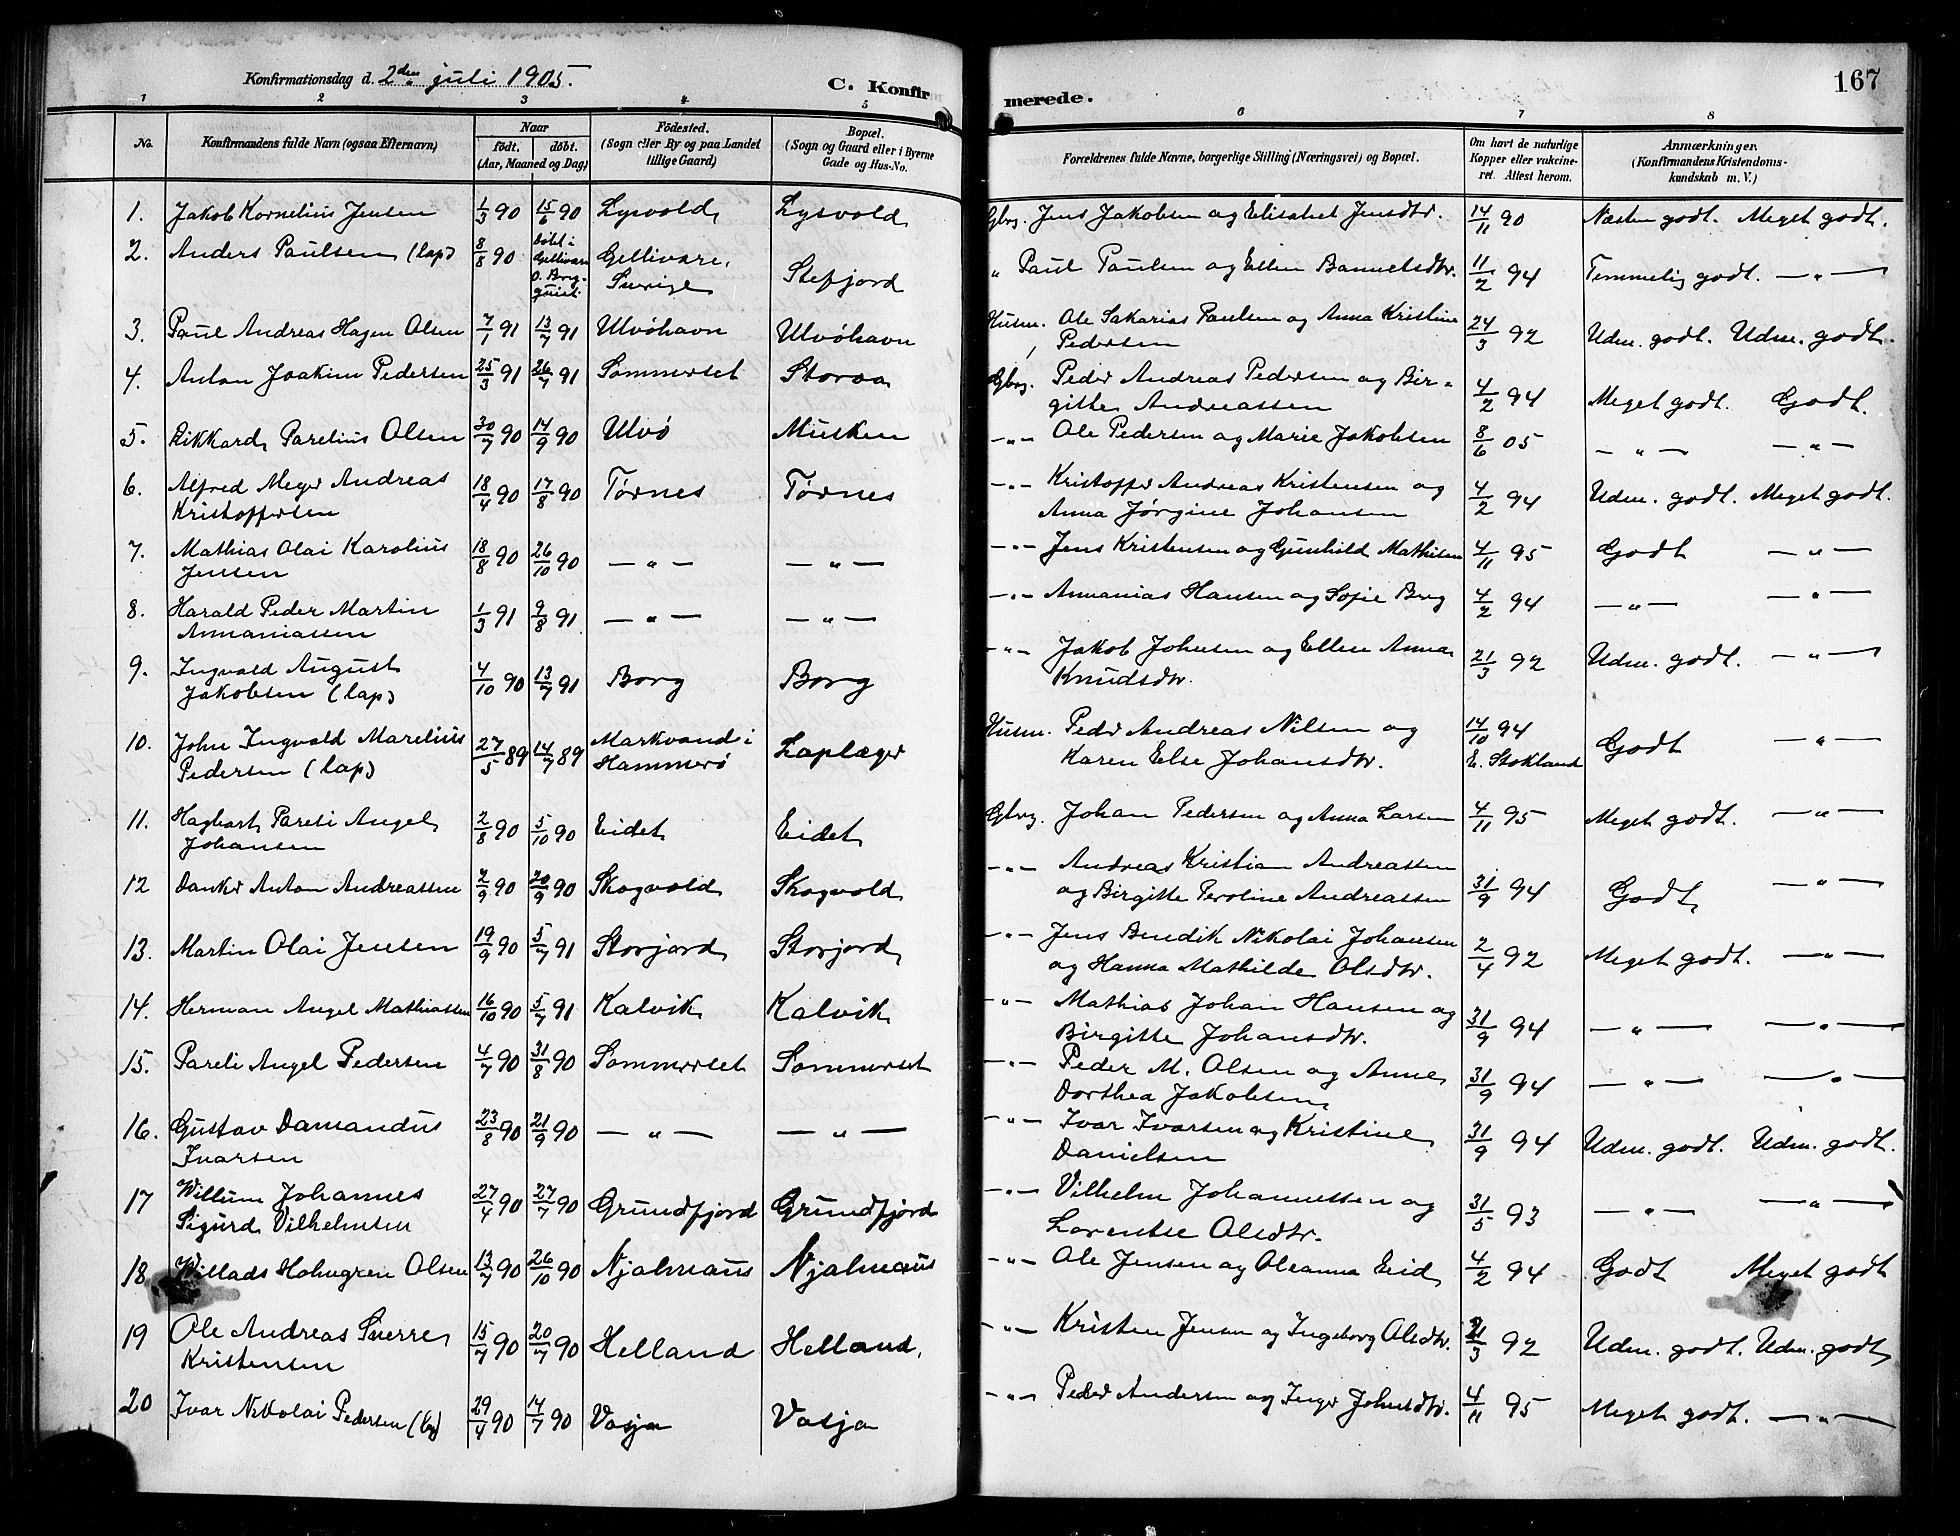 Konfirmationsdag d. 2den juli 1905.
C. Konfirmerede.
167
1 2 3 4 5 6 7 8
No.
Konfirmandens fulde Navn (ogsaa Efternavn)
Naar
født. døbt.
(Aar, Maaned og Dag)
Fødested.
(Sogn eller By og paa Landet
tillige Gaard)
Bopæl.
(Sogn og Gaard eller i Byerne
Gade og Hus-No.
Forældrenes fulde Navne, borgerlige Stilling (Næringsvei) og Bopæl.
Om havt de naturlige
Kopper eller vakcine-
ret. Attest herom.
Anmærkninger.
(Konfirmandens Kristendoms-
kundskab m. V.)
1. Jakob Kornelius Jensen 1/3 90 15/6 90 Lysvold Lysvold Gbrg. Jens Jakobsen og Elisabet Jensdtr. 14/11 90 Næsten godt. Meget godt.
2. Anders Paulsen (lap) 8/8 90 Døbt i Gellivare Gellivare, Sverige Stefjord " Paul Paulsen og Ellen 11/2 94 Temmelig godt. — " —
3. Paul Andreas Hagen Olsen 7/1 91 13/7 91 Ulvöhavn Ulvöhavn Husm. Ole Sakarias Paulsen og Anna Kristine
Pedersen 24/3 92 Udm. godt. Udm. godt.
4. Anton Joakim Pedersen 25/3 91 26/7 91 Sommerset Storaa Gbrg. Peder Andreas Pedersen og Bir-
gitte Andreassen 4/2 94 Meget godt. Godt.
5. Rikkard Parelius Olsen 30/7 90 14/9 90 Ulvö Musken — " — Ole Pedersen og Marie Jakobsen 8/6 05 — " — — " —
6. Alfred Meyer Andreas
Kristoffersen 18/4 90 17/8 90 Tørnes Tørnes — " — Kristoffer Andreas Kristensen og
Anna Jørgine Johansen 4/2 94 Udm. godt. Meget godt.
7. Mathias Olai Karolius
Jensen 18/8 90 26/10 90 — " — — " — — " — Jens Kristensen og Gunhild Mathisen 4/11 95 Godt — " —
8. Harald Peder Martin
Annaniassen 1/3 91 9/8 91 — " — — " — — " — Annanias Hansen og Sofie Berg 4/2 94 — " — — " —
9. Ingvald August
Jakobsen (lap) 4/10 90 13/7 91 Borg Borg — " — Jakob Johnsen og Ellen Anna
Knudsdtr. 21/3 92 Udm. godt. — " —
10. John Ingvald Marelius
Pedersen (lap) 27/5 89 14/7 89 Markvand i
Hammerö Laplæger Husm. Peder Andreas Nilsen og
Karen Else Johansdtr. 14/10 94
E. Stokland Godt — " —
11. Hagbart Pareli Angel
Johansen 2/8 90 5/10 90 Eidet Eidet Gbrg. Johan Pedersen og Anna Larsen 4/11 95 Meget godt. — " —
12 Danker Anton Andreassen 2/9 90 20/9 90 Skogvold Skogvold — " — Andreas Kristian Andreassen
og Birgitte Peroline Andreassen 31/9 94 Godt — " —
13. Martin Olai Jensen 19/9 90 5/7 91 Storjord Storjord — " — Jens Bendik Nikolai Johansen
og Hanna Mathilde Olsdtr. 2/4 92 Meget godt. — " —
14. Herman Angel Mathiassen 16/10 90 5/7 91 Kalvik Kalvik — " — Mathias Johan Hansen og
Birgitte Johansdtr. 31/9 94 — " — — " —
15. Pareli Angel Pedersen 4/7 90 31/8 90 Sommerset Sommerset — " — Peder M. Olsen og Anne
Dorthea Jakobsen 31/9 94 — " — — " —
16. Gustav Damandus
Ivarsen 23/8 90 21/9 90 — " — — " — — " — Ivar Ivarsen og Kristine
Danielsen 31/9 94 Udm. godt. Udm. godt.
17 Willum Johannes
Sigurd Vilhelmsen 27/4 90 27/7 90 Grundfjord Grundfjord — " — Vilhelm Johannessen og
Lorentse Olsdtr. 31/5 93 — " — — " —
18 Willads Holmgren Olsen 13/7 90 26/10 90 Njalmaus Njalmaus — " — Ole Jensen og Oleanna Eid 4/2 94 Godt Meget godt
19 Ole Andreas Sverre
Kristensen 15/7 90 20/7 90 Helland Helland. — " — Kristen Jensen og Ingeborg Olsdtr. 21/3 92 Udm. godt. Udm. godt
20 Ivar Nikolai Pedersen 29/4 90 14/7 90 Vasja Vasja — " — Peder Andersen og Inger Johnsdtr. 4/11 95 Meget godt. — " —